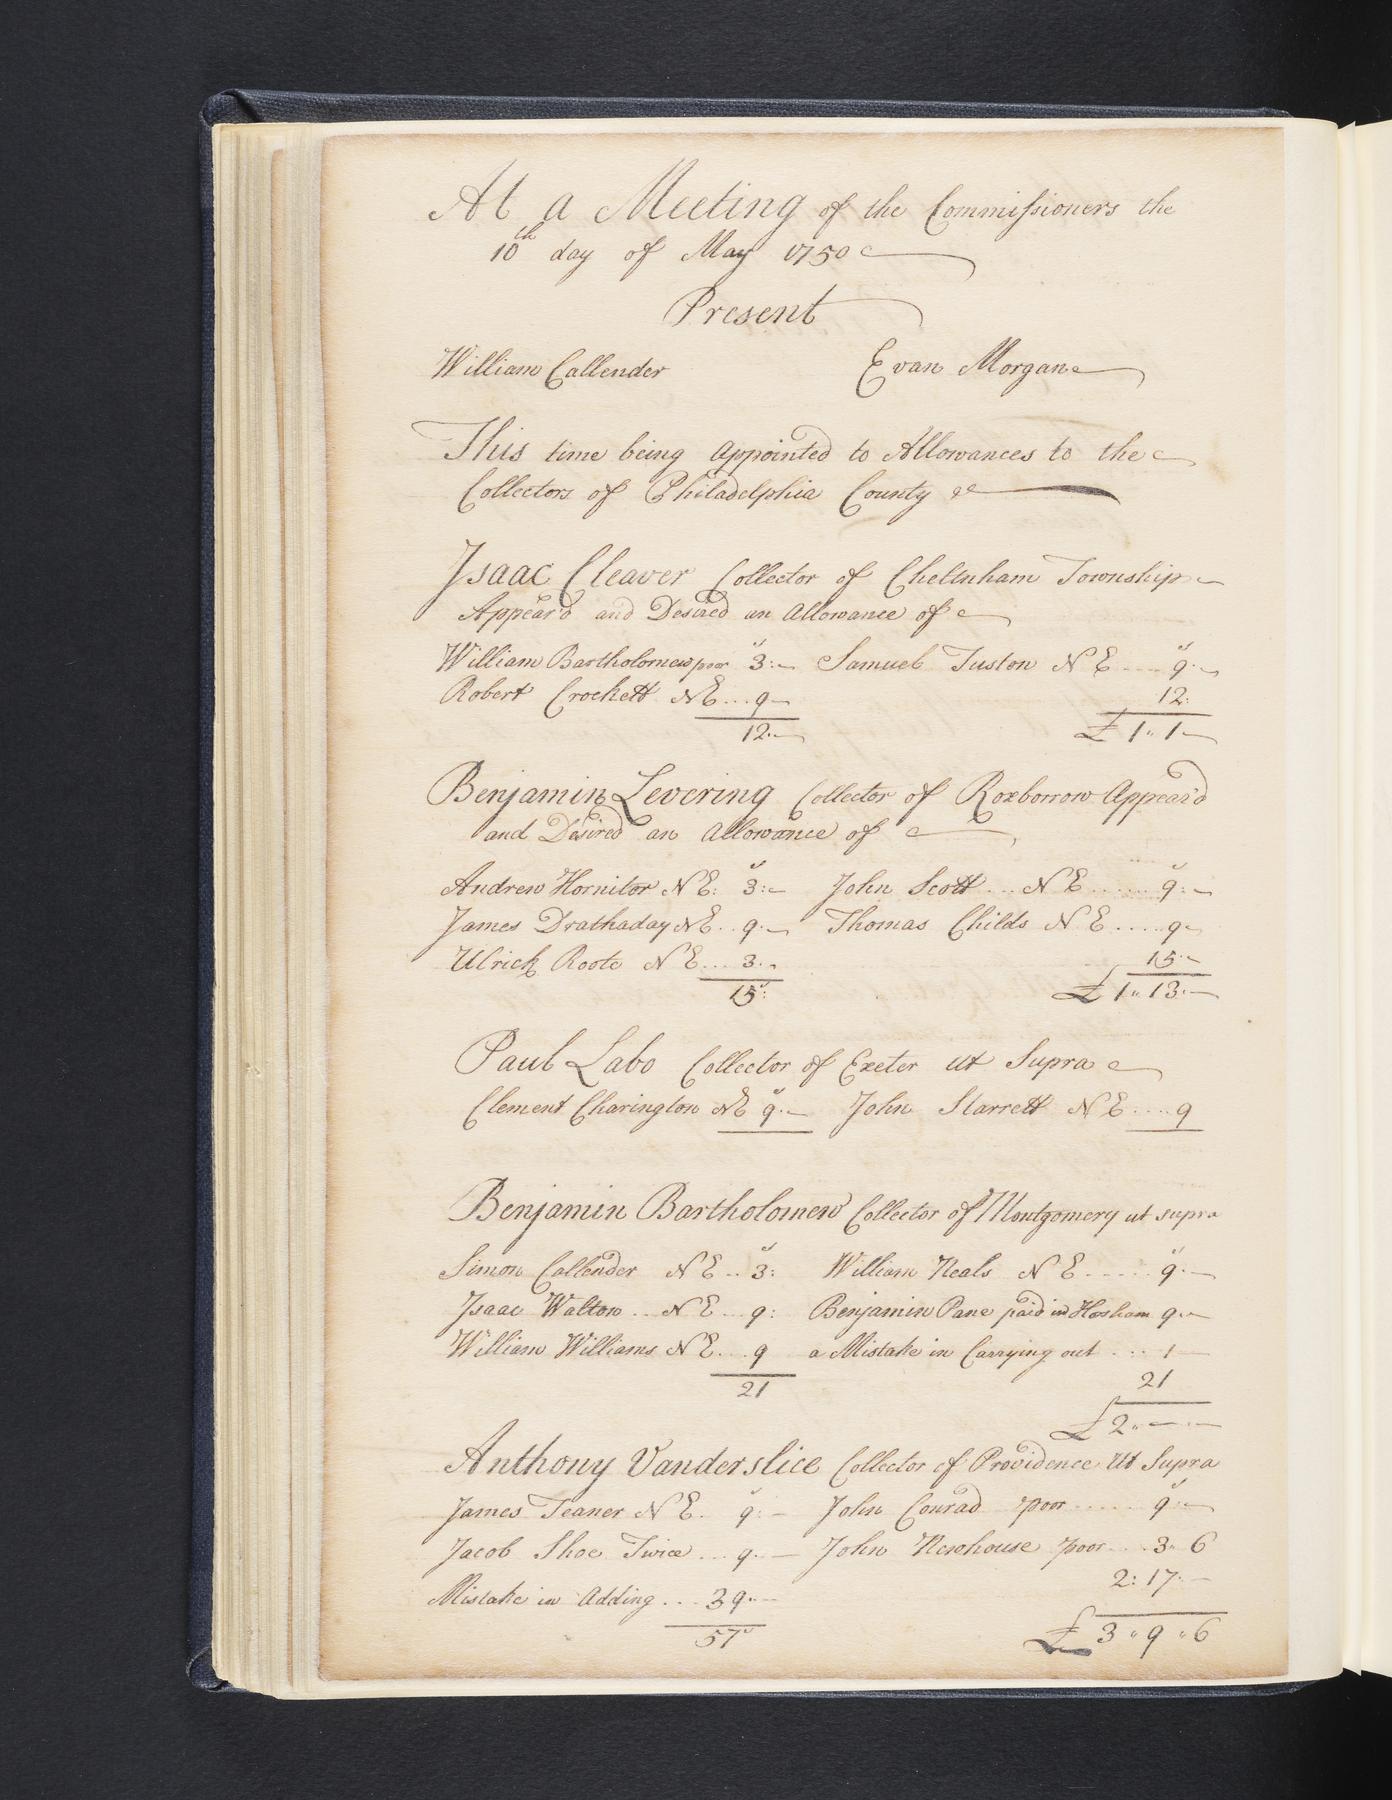 At a Meeting of the Commissioners the
10th day of May 1750
Present
William Callender Evan Morgan
This time being appointed to Allowances to the
Collectors of Philadelphia County &c
Isaac Cleaver Collector of Cheltnham Township
Appear'd and Desired an Allowance of
William Bartholomew poor 3:— Samuel Tuston NE .... 9:—
Robert Crockett NE ... 9— 12:
12:— £ 1" 1—
Benjamin Levering Collector of Roxborrow Appear'd
and Desired an Allowance of
Andrew Hornitor NE: 3:— John Scott ... NE ...... 9:—
James Drathaday NE .. 9:— Thomas Childs NE ..... 9—
Ulrick Roote NE ... 3:— 15:—
15: £ 1" 13:—
Paul Labo Collector of Exeter ut Supra
Clement Charington NE 9:— John Starrett NE .... 9
Benjamin Bartholomew Collector of Montgomery ut supra
Simon Callender NE .. 3: William Neals NE ..... 9:—
Isaac Walton .. NE ... 9: Benjamin Pane paid in Horsham 9:—
William Williams NE ... 9 a Mistake in Carrying out .... 1—
21 21
£ 2"—"—
Anthony Vanderslice Collector of Providence Ut Supra
James Teaner NE. 9:— John Conrad poor ...... 9:—
Jacob Shoe Twice ... 9:— John Newhouse poor .... 3" 6
Mistake in adding ... 39:— 2:17:—
57 £ 3" 9" 6